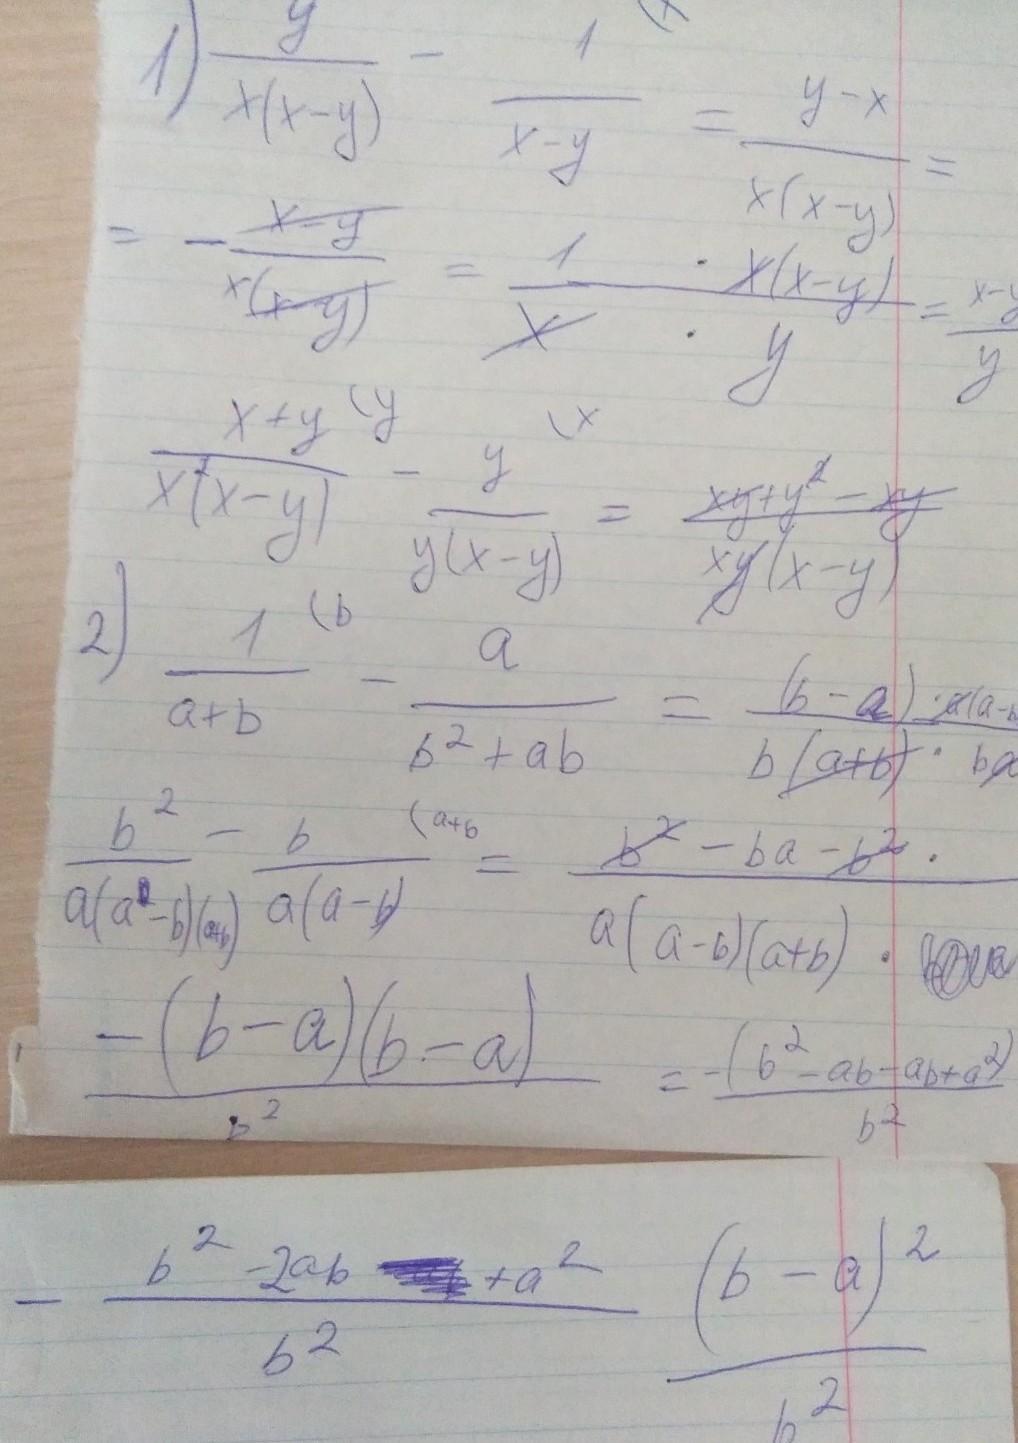 1) y/(x(x-y)) - 1/(x-y) (x = (y-x)/(x(x-y)) =
= - (x-y)/(x(x-y)) = 1/x · x(x-y)/y = (x-y)/y
(x+y)/(x²(x-y)) (y - y/(y(x-y)) (x = (xy+y²-xy)/(xy(x-y))
2) 1/(a+b) (b - a/(b²+ab) = (b-a)/(b(a+b)) · a(a-b)/ba
b²/(a(a-b)(a+b)) - b/(a(a-b)) (a+b = (b²-ba-b²)/(a(a-b)(a+b)) ·
-(b-a)(b-a)/b² = -(b²-ab-ab+a²)/b²
- (b²-2ab+a²)/b² (b-a)²/b²